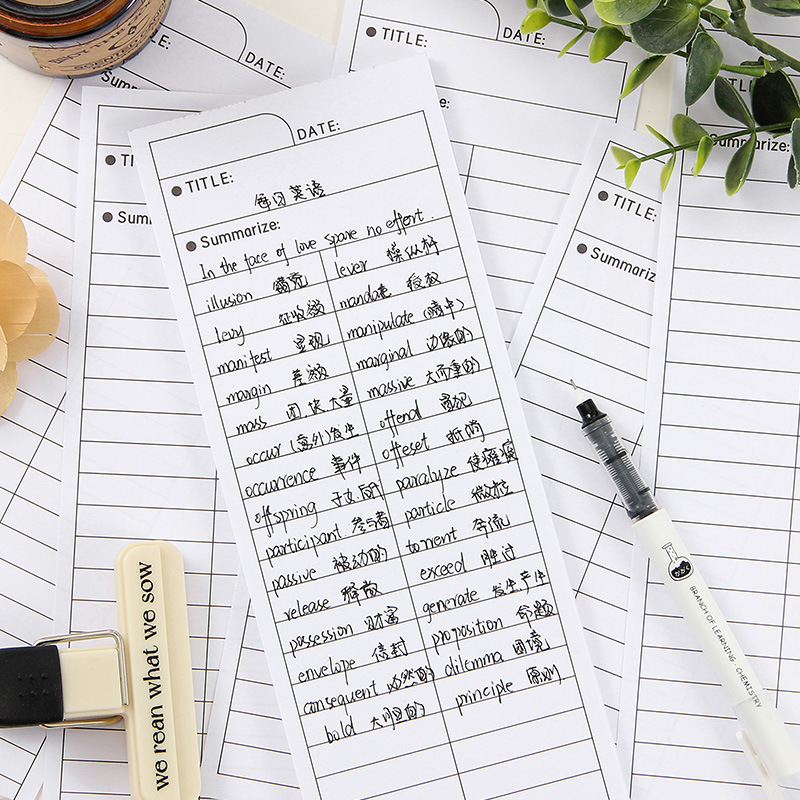 DATE:
TITLE:
每日英语
Summarize:
In the face of love spare no effort.
illusion 错觉 lever 操纵杆
levy 征收钱 mandate 授权
manifest 显现 manipulate (暗中)
margin 差额 marginal 边缘的
mass 团块大量 massive 大而重的
occur (意外)发生 offend 冒犯
occurrence 事件 offeset 抵消
offspring 子女.后代 paralyze 使瘫痪
participant 参与者 particle 微粒
passive 被动的 torrent 奔流
release 释放 exceed 胜过
possession 财富 generate 发生.产生
envelope 信封 proposition 命题
consequent 必然的 dilemma 困境
bold 大胆的 principle 原则
DATE:
TITLE:
Summarize:
TITLE:
DATE:
TITLE:
Summarize:
we rean what we sow
BRANCH OF LEARNING: CHEMISTRY